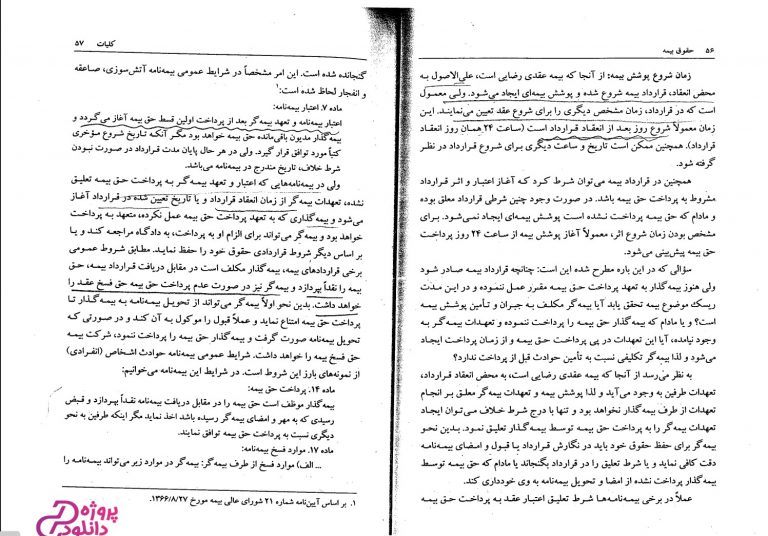 ۵۶ حقوق بیمه
زمان شروع پوشش بیمه: از آنجا که بیمه عقدی رضایی است، علی‌الاصول به
محض انعقاد، قرارداد بیمه شروع شده و پوشش بیمه‌ای ایجاد می‌شود. ولی معمول
است که در قرارداد، زمان مشخص دیگری را برای شروع عقد تعیین می‌نمایند. این
زمان معمولاً شروع روز بعد از انعقاد قرارداد است (ساعت ۲۴ همان روز انعقاد
قرارداد). همچنین ممکن است تاریخ و ساعت دیگری برای شروع قرارداد در نظر
گرفته شود.
همچنین در قرارداد بیمه می‌توان شرط کرد که آغاز اعتبار و اثر قرارداد
مشروط به پرداخت حق بیمه باشد. در صورت وجود چنین شرطی قرارداد معلق بوده
و مادام که حق بیمه پرداخت نشده است پوشش بیمه‌ای ایجاد نمی‌شود. برای
مشخص بودن زمان شروع اثر، معمولاً آغاز پوشش بیمه از ساعت ۲۴ روز پرداخت
حق بیمه پیش‌بینی می‌شود.
سؤالی که در این باره مطرح شده این است: چنانچه قرارداد بیمه صادر شود
ولی هنوز بیمه‌گذار به تعهد پرداخت حق بیمه مقرر عمل ننموده و در این مدت
ریسک موضوع بیمه تحقق یابد آیا بیمه‌گر مکلف به جبران و تأمین پوشش بیمه
است؟ و یا مادام که بیمه‌گذار حق بیمه را پرداخت ننموده و تعهدات بیمه‌گر به
وجود نیامده، آیا این تعهدات در پی پرداخت حق بیمه و از زمان پرداخت ایجاد
می‌شود و لذا بیمه‌گر تکلیفی نسبت به تأمین حوادث قبل از پرداخت ندارد؟
به نظر می‌رسد از آنجا که بیمه عقدی رضایی است، به محض انعقاد قرارداد،
تعهدات طرفین به وجود می‌آید و لذا پوشش بیمه و تعهدات بیمه‌گر معلق بر انجام
تعهدات از طرف بیمه‌گذار نخواهد بود و تنها با درج شرط خلاف می‌توان ایجاد
تعهدات بیمه‌گر را به پرداخت حق بیمه توسط بیمه‌گذار تعلیق نمود. بدین نحو
بیمه‌گر برای حفظ حقوق خود باید در نگارش قرارداد یا قبول و امضای بیمه‌نامه
دقت کافی نماید و یا شرط تعلیق را در قرارداد بگنجاند یا مادام که حق بیمه توسط
بیمه‌گذار پرداخت نشده از امضا و تحویل بیمه‌نامه به وی خودداری کند.
عملاً در برخی بیمه‌نامه‌ها شرط تعلیق اعتبار عقد به پرداخت حق بیمه
کلیات ۵۷
گنجانده شده است. این امر مشخصاً در شرایط عمومی بیمه‌نامه آتش‌سوزی، صاعقه
و انفجار لحاظ شده است:۱
ماده ۷. اعتبار بیمه‌نامه:
اعتبار بیمه‌نامه و تعهد بیمه‌گر بعد از پرداخت اولین قسط حق بیمه آغاز می‌گردد و
بیمه‌گذار مدیون باقی‌مانده حق بیمه خواهد بود مگر آنکه تاریخ شروع مؤخری
کتباً مورد توافق قرار گیرد. ولی در هر حال پایان مدت قرارداد در صورت نبودن
شرط خلاف، تاریخ مندرج در بیمه‌نامه می‌باشد.
ولی در بیمه‌نامه‌هایی که اعتبار و تعهد بیمه‌گر به پرداخت حق بیمه تعلیق
نشده، تعهدات بیمه‌گر از زمان انعقاد قرارداد و یا تاریخ تعیین شده در قرارداد آغاز
می‌شود و بیمه‌گذاری که به تعهد پرداخت حق بیمه عمل نکرده، متعهد به پرداخت
خواهد بود و بیمه‌گر می‌تواند برای الزام او به پرداخت، به دادگاه مراجعه کند و یا
بر اساس دیگر شروط قراردادی حقوق خود را حفظ نماید. مطابق شروط عمومی
برخی قراردادهای بیمه، بیمه‌گذار مکلف است در مقابل دریافت قرارداد بیمه، حق
بیمه را نقداً بپردازد و بیمه‌گر نیز در صورت عدم پرداخت حق بیمه حق فسخ عقد را
خواهد داشت. بدین نحو اولاً بیمه‌گر می‌تواند از تحویل بیمه‌نامه به بیمه‌گذار تا
پرداخت حق بیمه امتناع نماید و عملاً قبول را موکول به آن کند و در صورتی که
تحویل بیمه‌نامه صورت گرفت و بیمه‌گذار حق بیمه را پرداخت ننمود، شرکت بیمه
حق فسخ بیمه را خواهد داشت. شرایط عمومی بیمه‌نامه حوادث اشخاص (انفرادی)
از نمونه‌های بارز این شروط است. در شرایط این بیمه‌نامه می‌خوانیم:
ماده ۱۴. پرداخت حق بیمه:
بیمه‌گذار موظف است حق بیمه را در مقابل دریافت بیمه‌نامه نقداً بپردازد و قبض
رسیدی که به مهر و امضای بیمه‌گر رسیده باشد اخذ نماید مگر اینکه طرفین به نحو
دیگری نسبت به پرداخت حق بیمه توافق نمایند.
ماده ۱۷. موارد فسخ بیمه‌نامه:
... الف) موارد فسخ از طرف بیمه‌گر: بیمه‌گر در موارد زیر می‌تواند بیمه‌نامه را
۱. بر اساس آیین‌نامه شماره ۲۱ شورای عالی بیمه مورخ ۱۳۶۶/۸/۲۷.
پروژه
دانلود